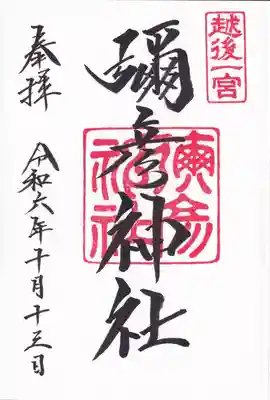 越後一宮
彌彦神社
奉拝
令和六年十月十三日